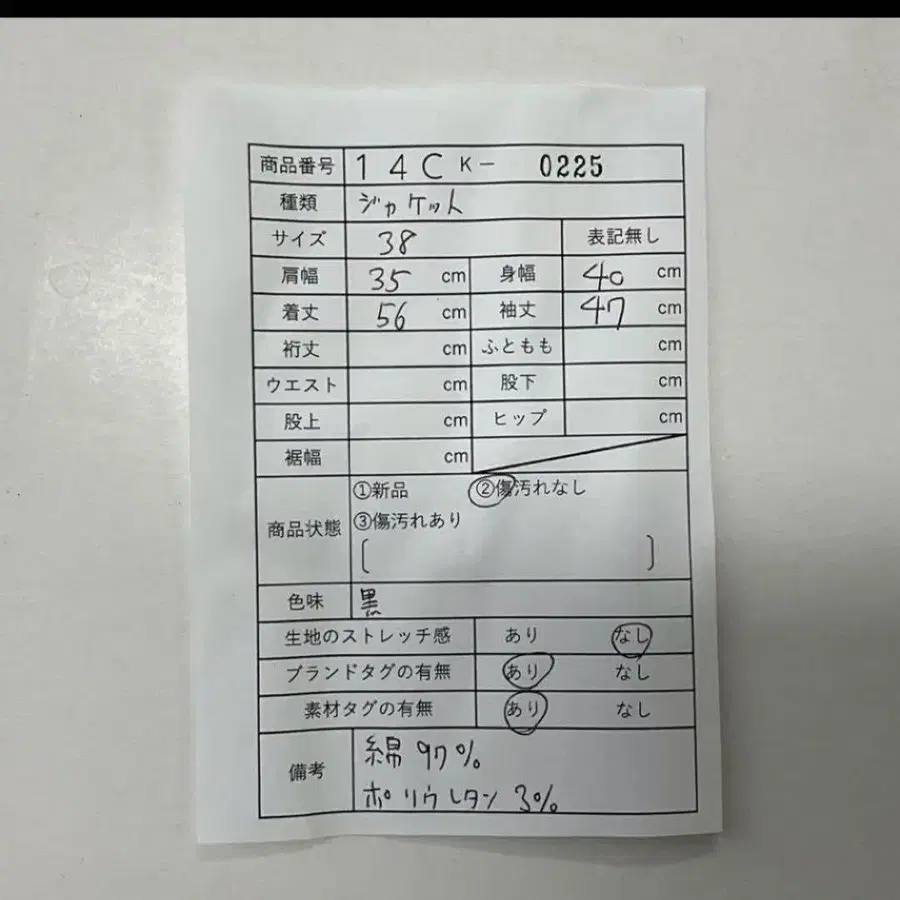 商品番号 14C K- 0225
種類 ジャケット
サイズ 38 表記無し
肩幅 35 cm 身幅 40 cm
着丈 56 cm 袖丈 47 cm
裄丈 cm ふともも cm
ウエスト cm 股下 cm
股上 cm ヒップ cm
裾幅 cm
商品状態 ①新品 ②傷汚れなし
③傷汚れあり
[ ]
色味 黒
生地のストレッチ感 あり なし
ブランドタグの有無 あり なし
素材タグの有無 あり なし
備考 綿 97%
ポリウレタン 3%